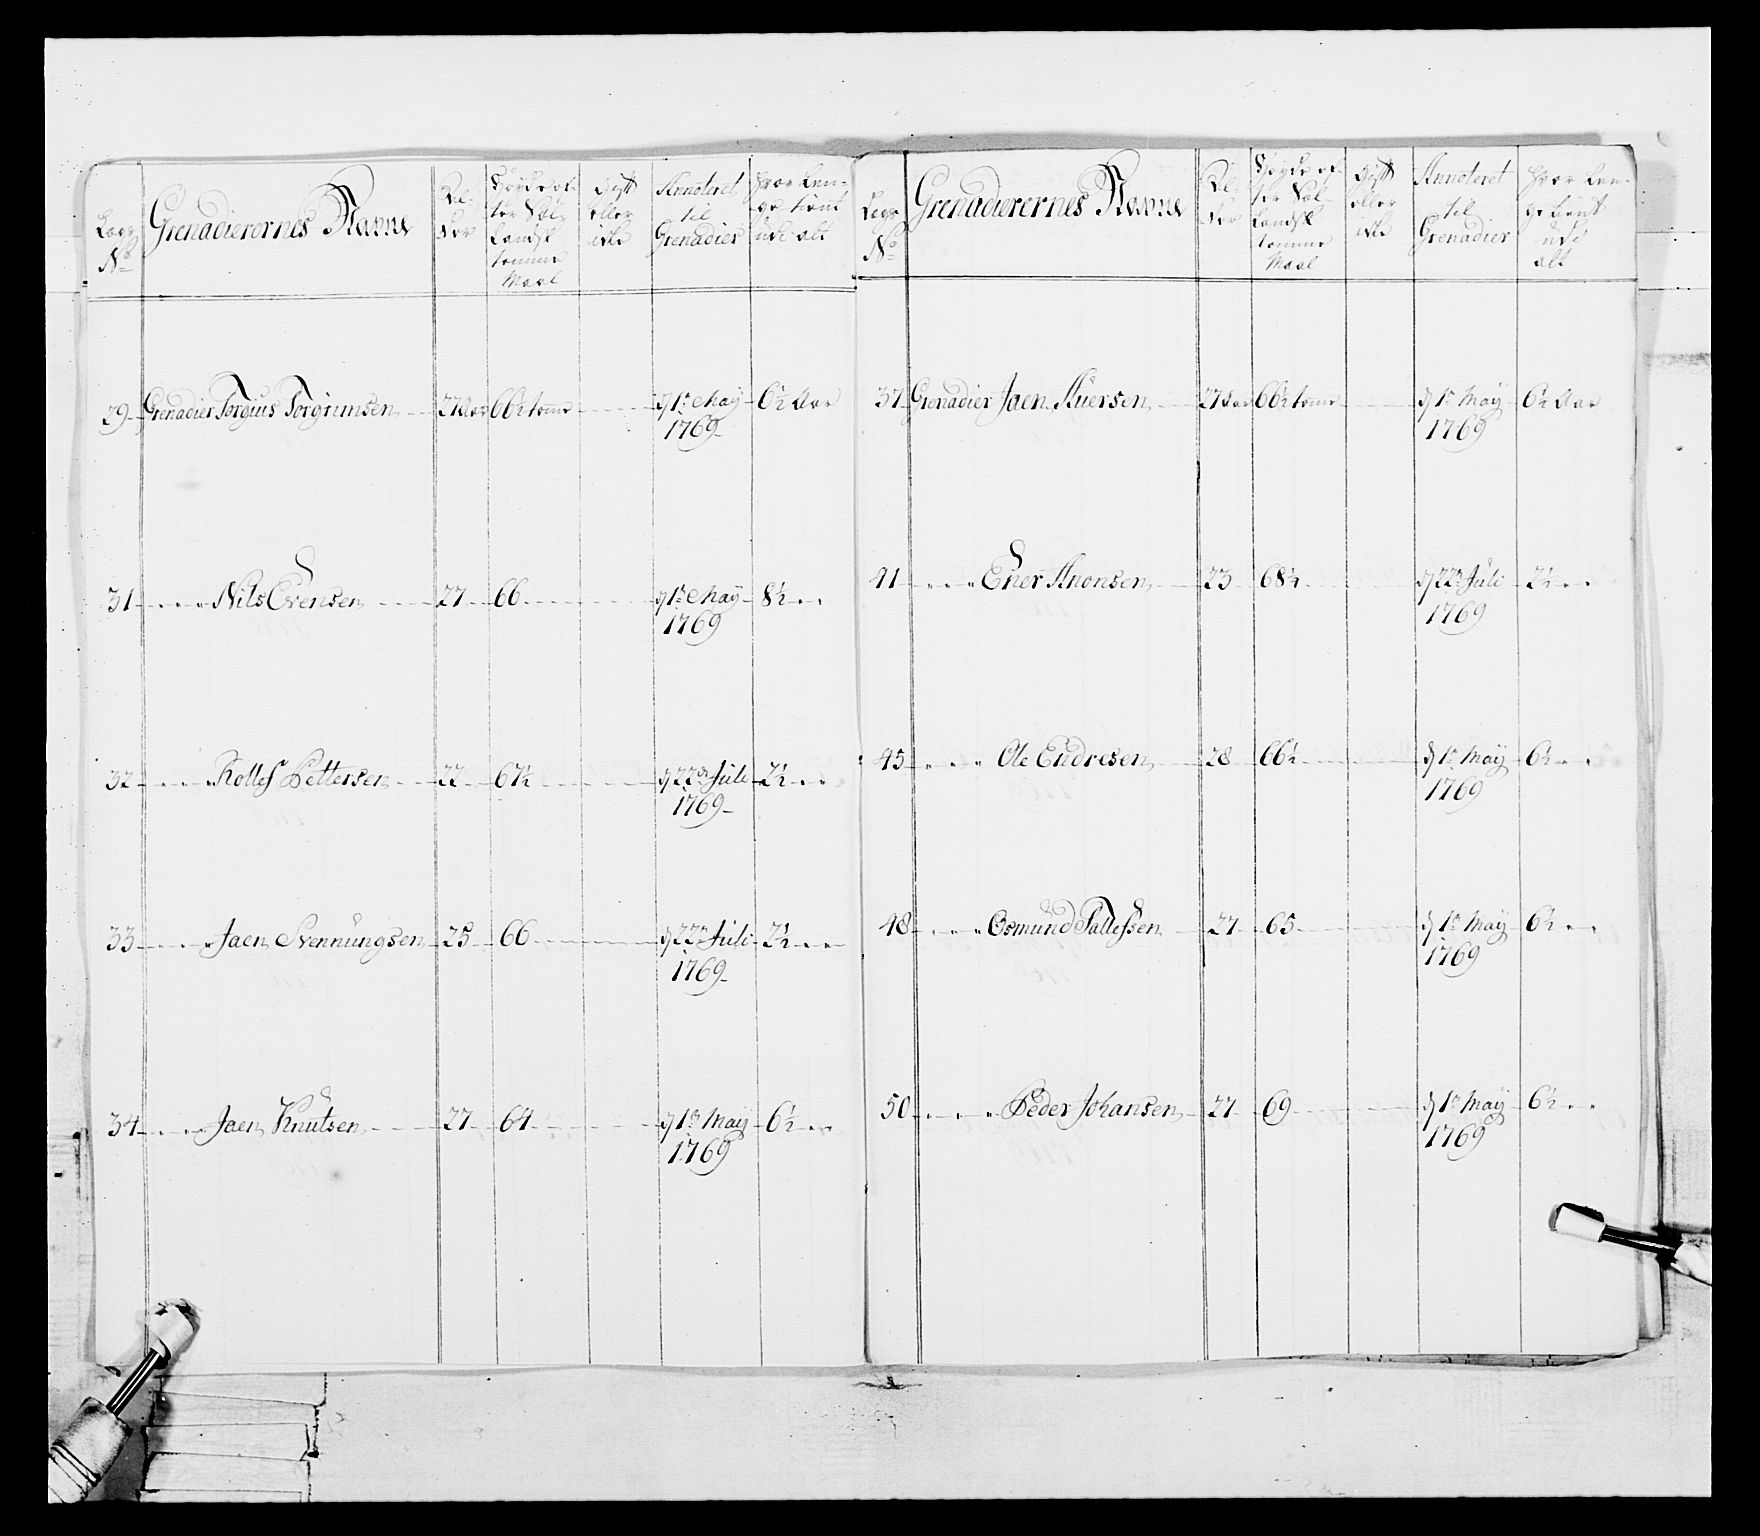 Legs No
Grenadierernes Navne
Al-
der
Høyde ef-
ter Sæl-
landsk
tomme
Maal
Gift
eller
ikke
Annoteret
til
Grenadier
Hvor Len-
ge tient
udi alt
29 Grenadier Torgius Torgrimsen 27 Aar 66½ tome d 1te May 6½ Aar
1769
31 " " " Nils Evensen 27 66 d 1te May 8½ " "
1769
32 " " " Rollef Pettersen 22 67½ d 22de Juli 2½ " "
1769
33 " " " Jaen Svennungsen 25 66 d 22de Juli 2½ " "
1769
34 " " " Jaen Knutsen 27 64 d 1te May 6½ " "
1769
Legs No
Grenadierernes Navne
Al-
der
Høyde ef-
ter Sæl-
landsk
tomme
Maal
Gift
eller
ikke
Annoteret
til
Grenadier
Hvor Len-
ge tient
udi
alt
37 Grenadier Jaen Auersen 27 Aar 66½ tome d 1te May 6½ Aar
1769
41 " " " Ener Anonsen 23 68½ d 22de Juli 2½ " "
1769
45 " " " Ole Endresen 28 66½ d 1te May 6½ " "
1769
48 " " " Osmund Tallefssen 27 65 d 1te May 6½ " "
1769
50 " " " Peder Johansen 27 69 d 1te May 6½ " "
1769